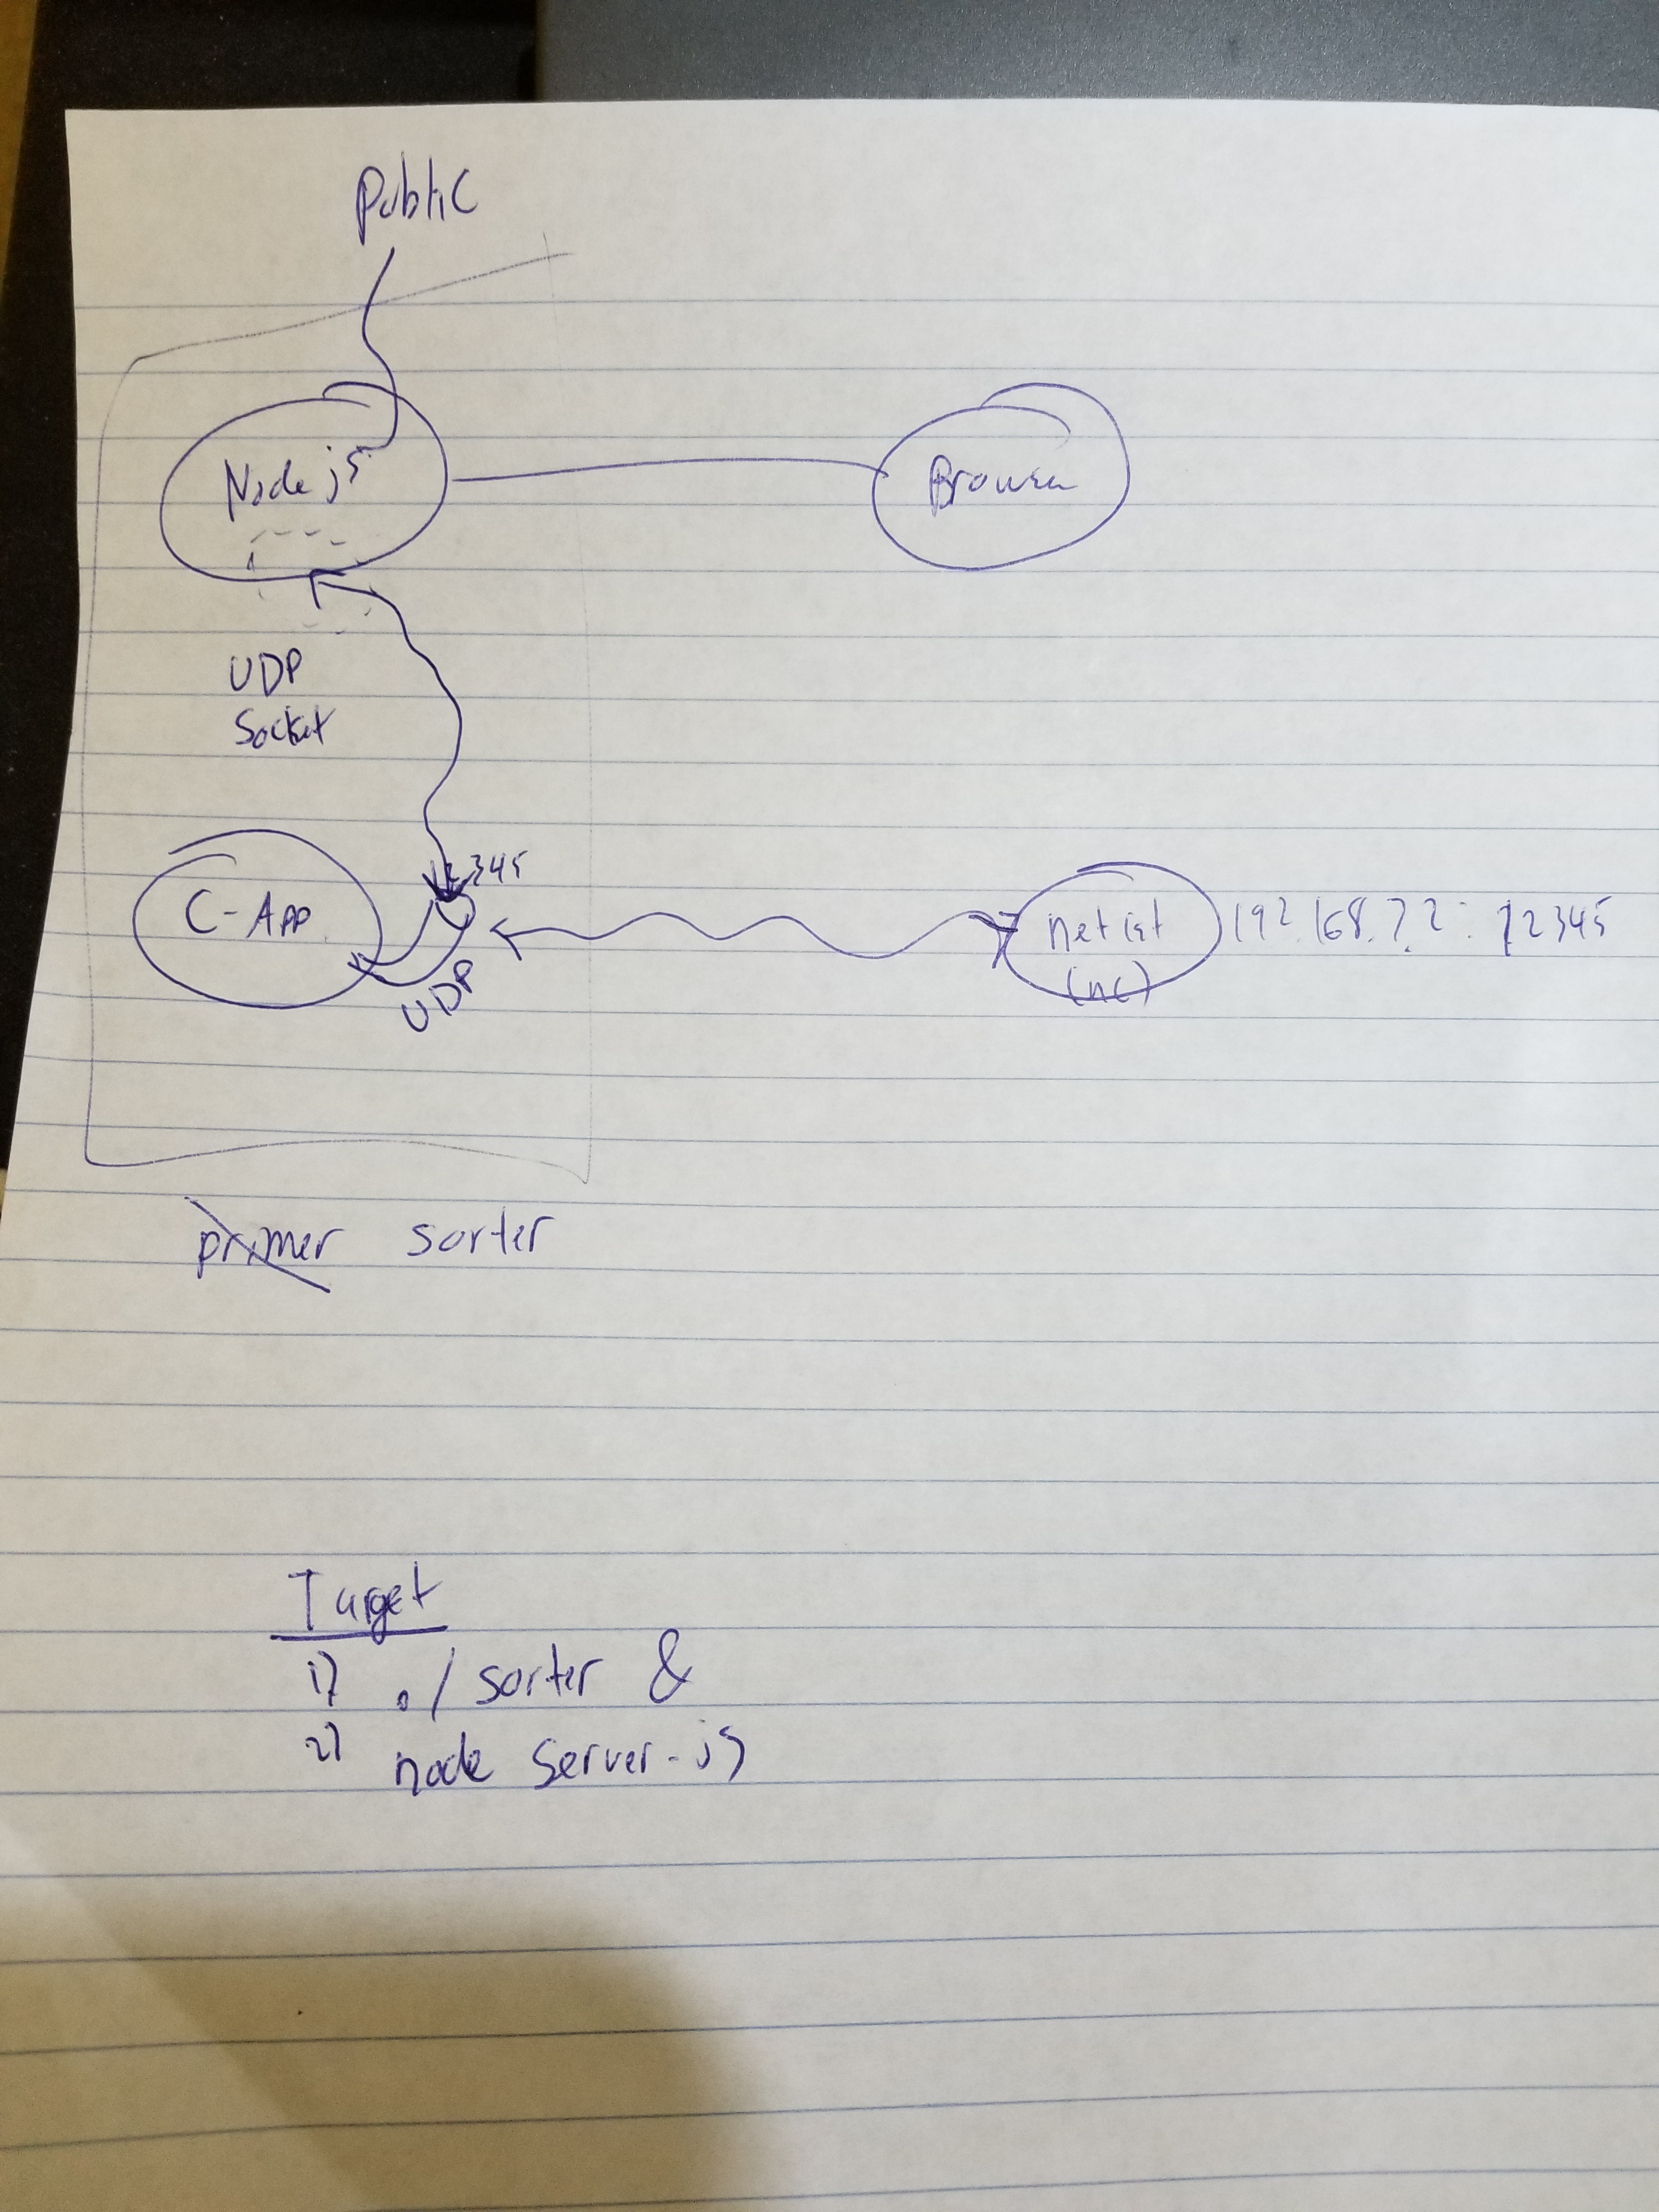 Public
Node js
Browser
UDP
Socket
12345
C-App
UDP
netcat
(nc)
192.168.7.2: 12345
primer sorter
Target
1) ./sorter &
2) node server.js